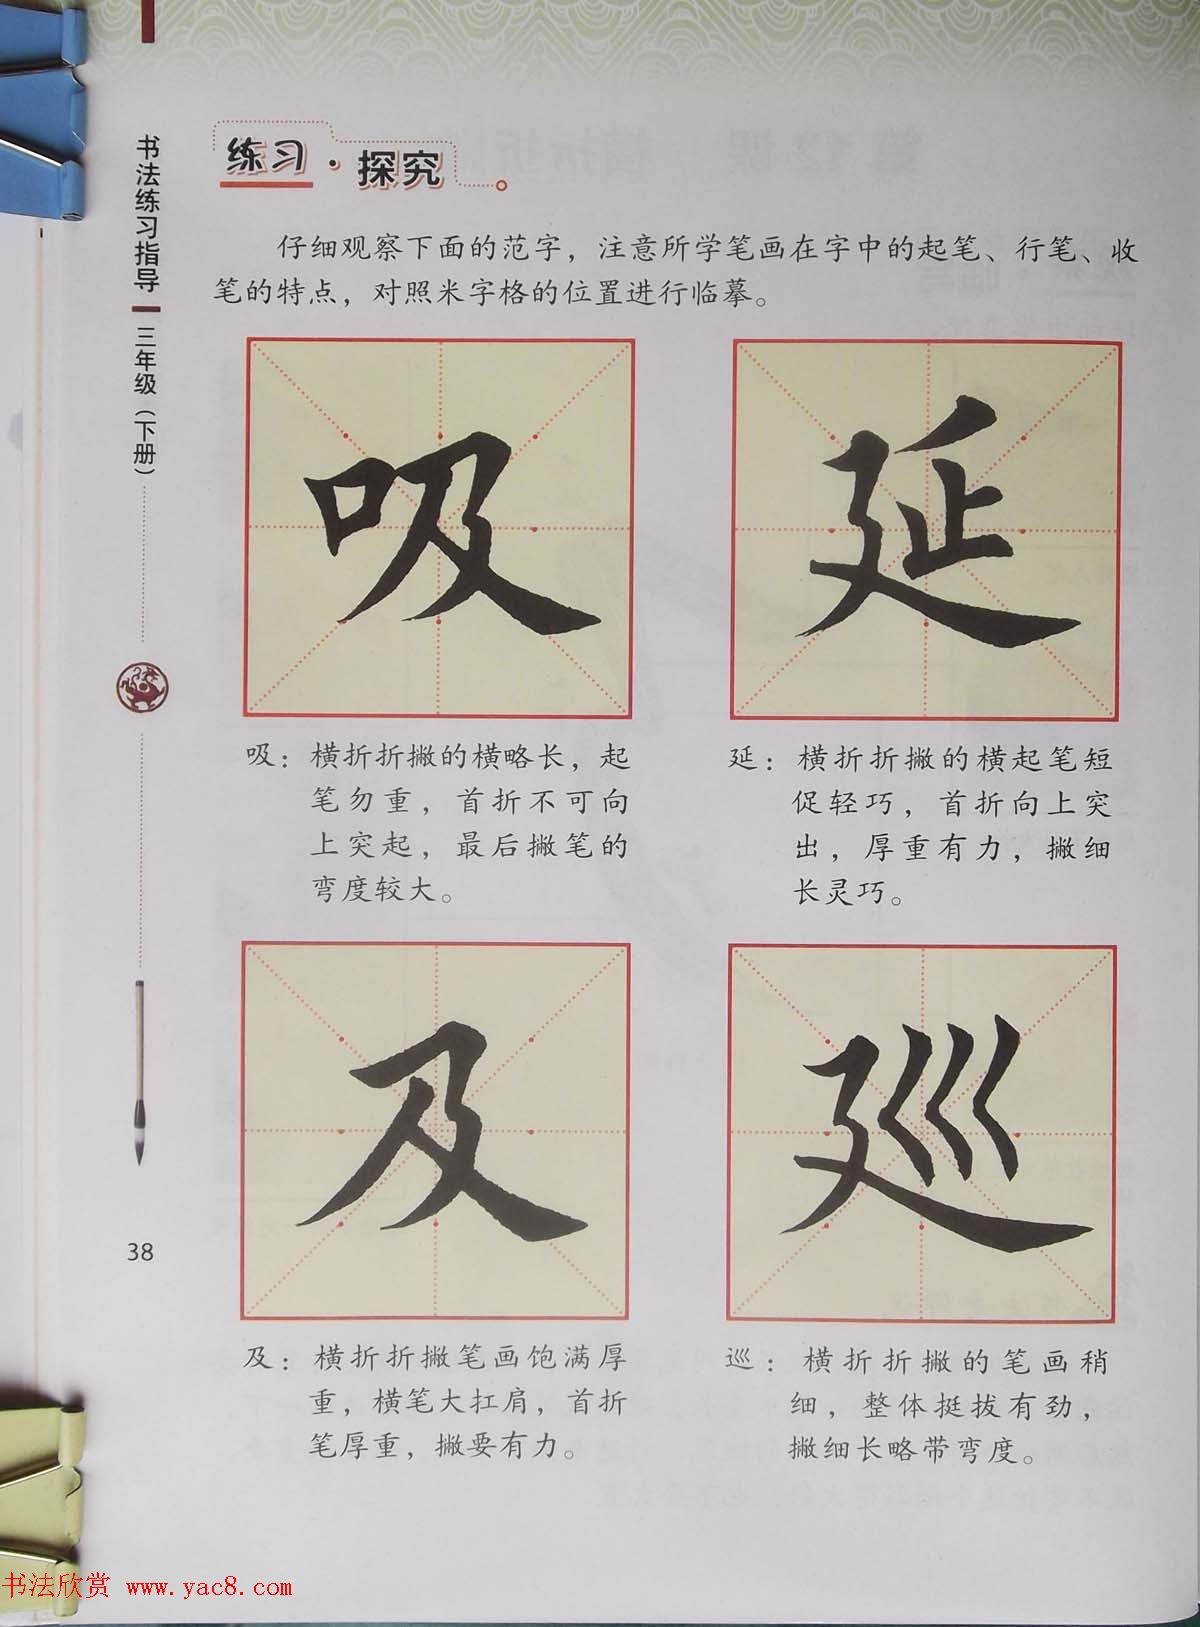 书法练习指导
三年级（下册）
38
练习·探究
仔细观察下面的范字，注意所学笔画在字中的起笔、行笔、收
笔的特点，对照米字格的位置进行临摹。
吸
延
吸：横折折撇的横略长，起
笔勿重，首折不可向
上突起，最后撇笔的
弯度较大。
延：横折折撇的横起笔短
促轻巧，首折向上突
出，厚重有力，撇细
长灵巧。
及
巡
及：横折折撇笔画饱满厚
重，横笔大扛肩，首折
笔厚重，撇要有力。
巡：横折折撇的笔画稍
细，整体挺拔有劲，
撇细长略带弯度。
书法欣赏 www.yac8.com